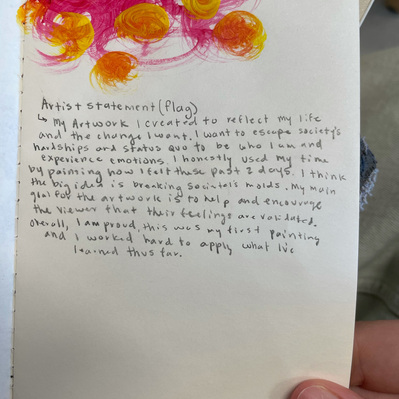 Artist statement (flag)
↳ My Artwork I created to reflect my life
and the change I want. I want to escape society's
hardships and status quo to be who I am and
experience emotions. I honestly used my time
by painting how I felt these past 2 days. I think
the big idea is breaking societal's molds. My main
goal for the artwork is to help and encourage
the viewer that their feelings are validated.
Overall, I am proud, this was my first painting
and I worked hard to apply what I've
learned thus far.